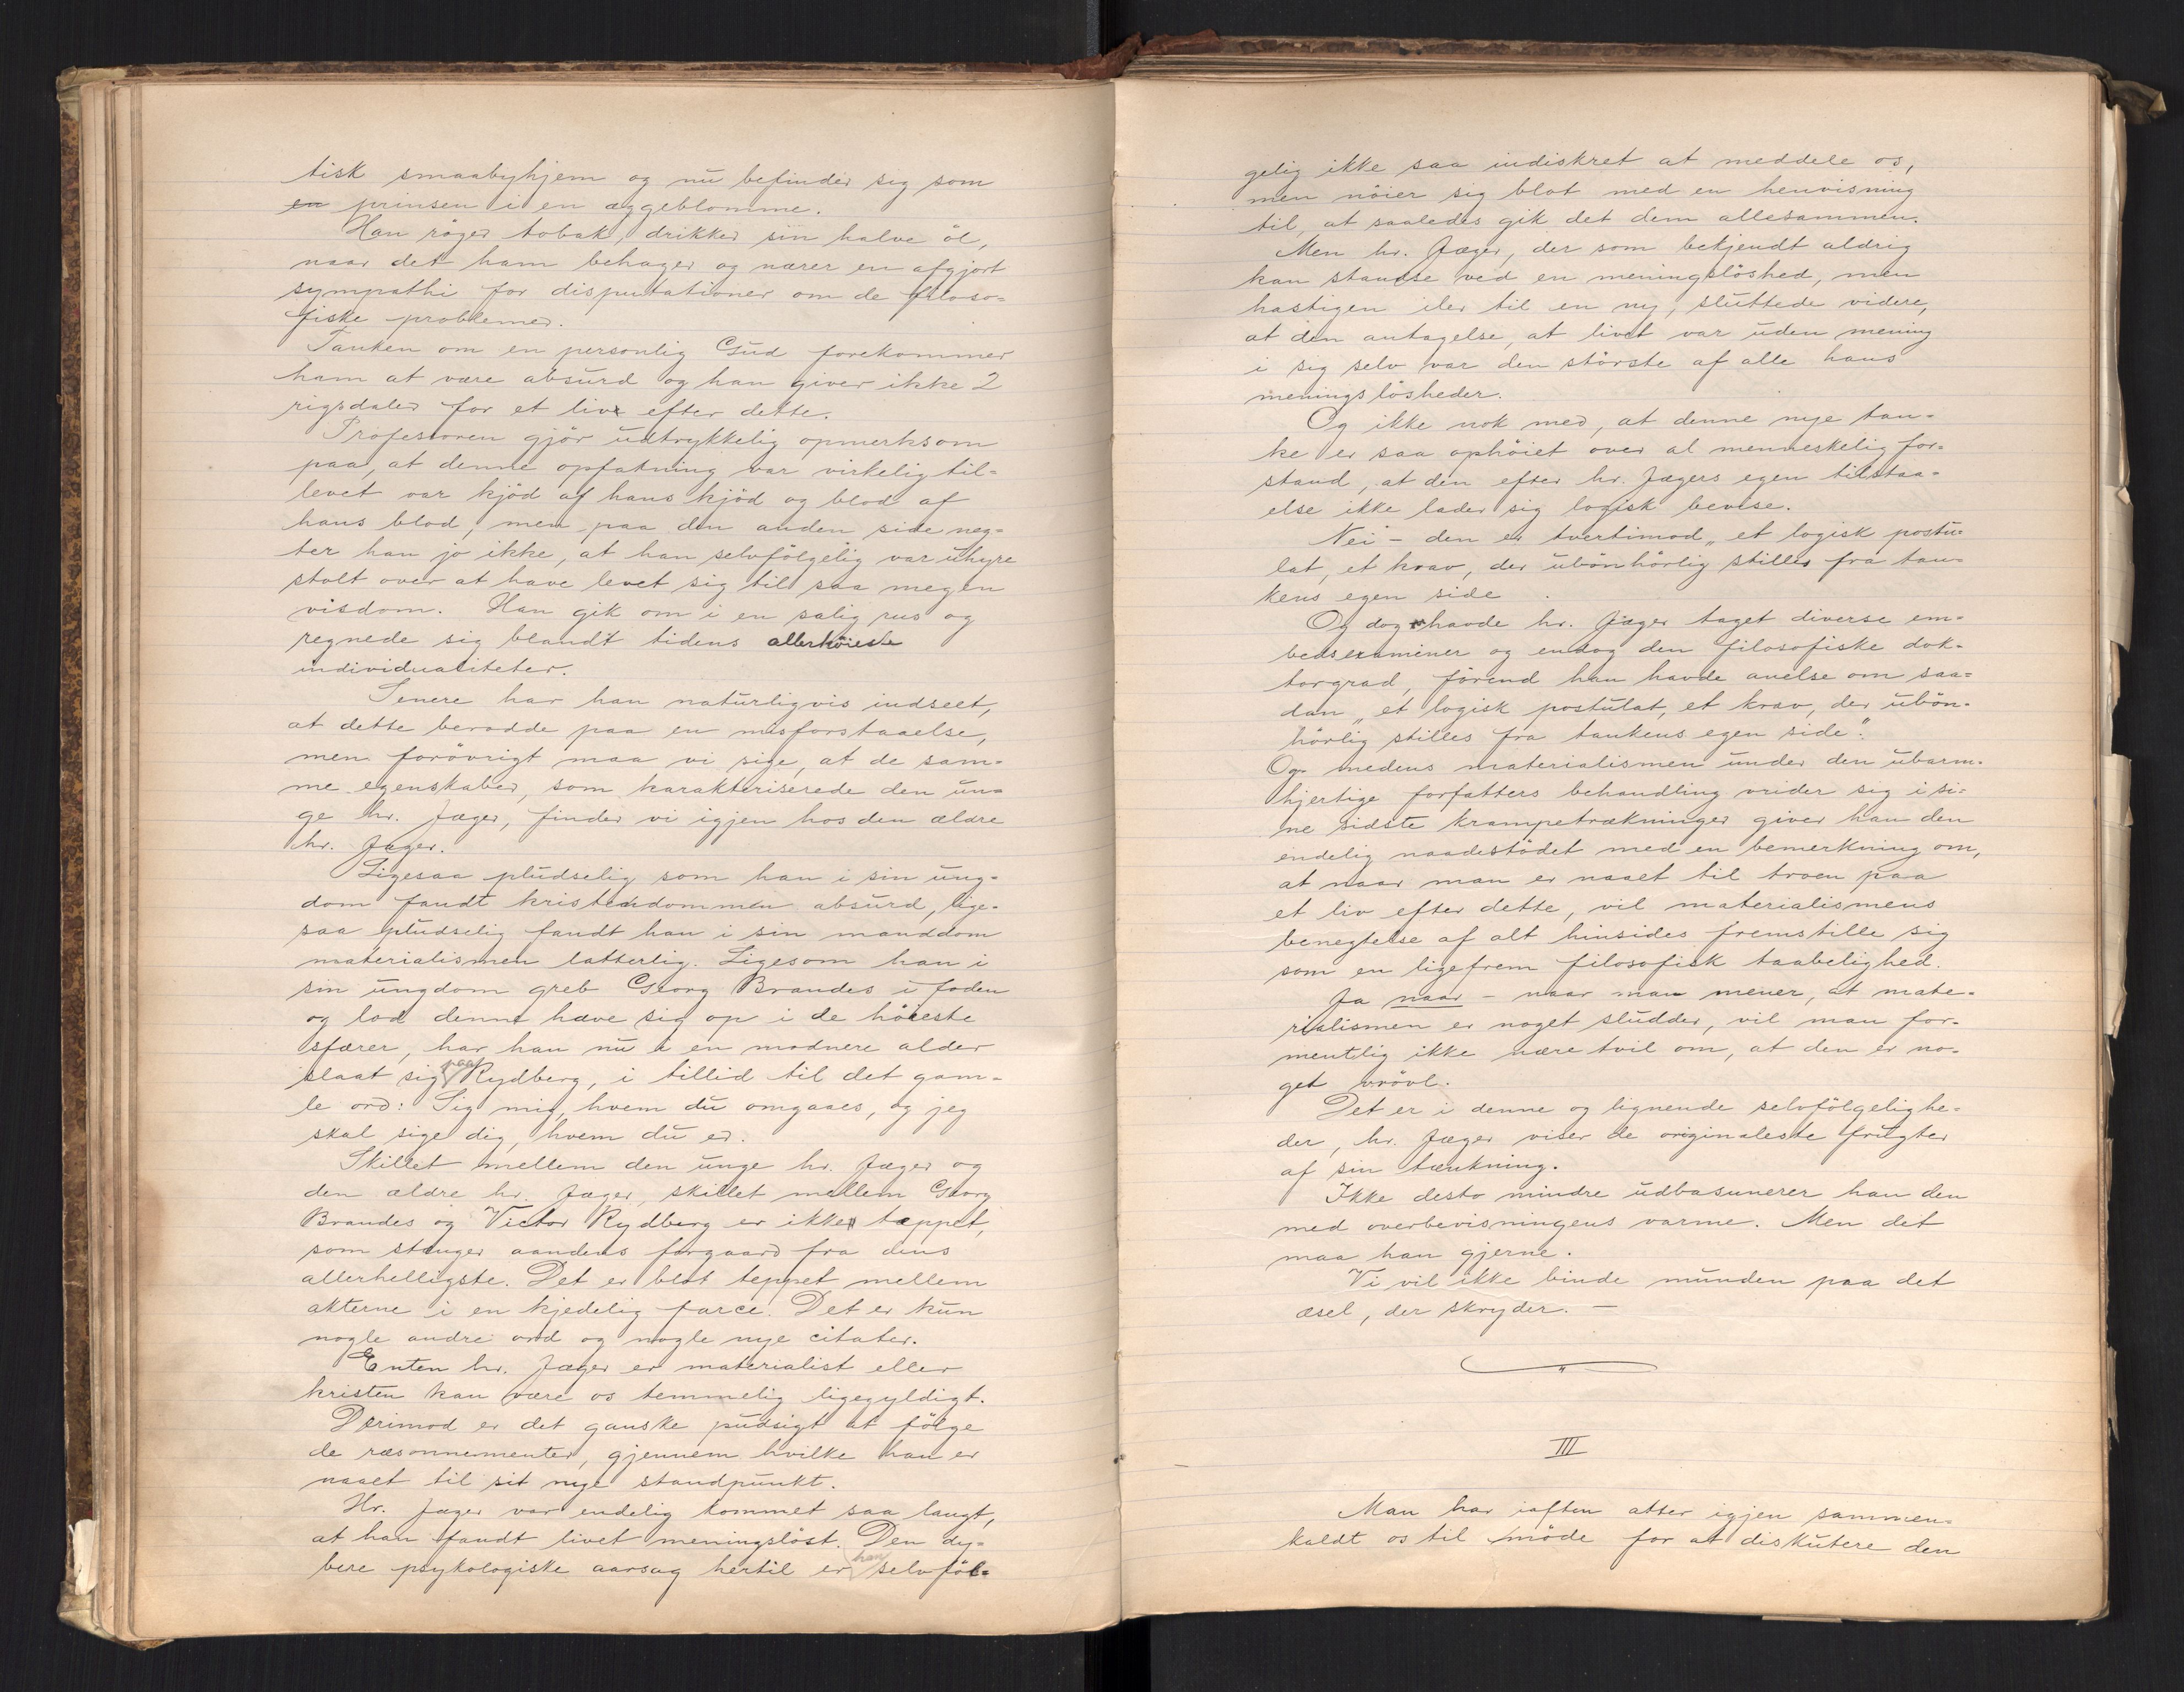 tisk smaabyhjem og nu befinder sig som
en prinsen i en æggeblomme.
Han röger tobak, drikker sin halve öl,
naar det ham behager og nærer en afgjort
sympathi for disputationer om de filoso=
fiske problemer.
Tanken om en personlig Gud forekommer
ham at være absurd og han giver ikke 2
rigsdaler for et liv efter dette.
Professoren gjör udtrykkelig opmerksom
paa, at denne opfatning var virkelig til=
levet var kjöd af hans kjöd og blod af
hans blod, men paa den anden side neg=
ter han jo ikke, at han selvfölgelig var uhyre
stolt over at have levet sig til saa megen
visdom. Han gik om i en salig rus og
regnede sig blandt tidens allerhöieste
individualiteter.
Senere har han naturligvis indseet,
at dette berodde paa en misforstaaelse,
men forövrigt maa vi sige, at de sam=
me egenskaber, som karakteriserede den un=
ge hr. Jæger, finder vi igjen hos den ældre
hr. Jæger.
Ligesaa pludselig som han i sin ung=
dom fandt kristendommen absurd, lige=
saa pludselig fandt han i sin manddom
materialismen latterlig. Ligesom han i
sin ungdom greb Georg Brandes i foden
og lod denne hæve sig op i de höieste
sfærer, har han nu i en modnere alder
slaat sig paa Rydberg, i tillid til det gam=
le ord: Sig mig, hvem du omgaaes, og jeg
skal sige dig, hvem du er.
Skillet mellem den unge hr. Jæger og
den ældre hr. Jæger, skillet mellem Georg
Brandes og Victor Rydberg er ikke tæppet,
som stænger aandens forgaard fra dens
allerhelligste. Det er blot teppet mellem
akterne i en kjedelig farce. Det er kun
nogle andre ord og nogle nye citater.
Enten hr. Jæger er materialist eller
kristen kan være os temmelig ligegyldigt.
Derimod er det ganske pudsigt at fölge
de ræsonnementer, gjennem hvilke han er
naaet til sit nye standpunkt.
Hr. Jæger var endelig kommet saa langt,
at han fandt livet meningslöst. Den dy=
bere psykologiske aarsag hertil er han selvföl=
gelig ikke saa indiskret at meddele os,
men nöier sig blot med en henvisning
til, at saaledes gik det dem allesammen.
Men hr. Jæger, der som bekjendt aldrig
kan standse ved en meningslöshed, men
hastigen iler til en ny, sluttede videre,
at den antagelse, at livet var uden mening
i sig selv var den störste af alle hans
meningslösheder.
Og ikke nok med, at denne nye tan=
ke er saa ophöiet over al menneskelig for=
stand, at den efter hr. Jægers egen tilstaa=
else ikke lader sig logisk bevise.
Nei - den er tvertimod „et logisk postu=
lat, et krav, der ubönhörlig stilles fra tan=
kens egen side.
Og dog havde hr. Jæger taget diverse em=
bedsexaminer og endog den filosofiske dok=
torgrad, förend han havde anelse om saa=
dan „et logisk postulat, et krav, der ubön=
hörlig stilles fra tankens egen side".
Og medens materialismen under den ubarm=
hjertige forfatters behandling vrider sig i si=
ne sidste krampetrækninger giver han den
endelig naadestödet med en bemerkning om,
at naar man er naaet til troen paa
et liv efter dette, vil materialismens
benegtelse af alt hinsides fremstille sig
som en ligefrem filosofisk taabelighed.
Ja naar - naar man mener, at mate=
rialismen er noget sludder, vil man for=
mentlig ikke nære tvil om, at den er no=
get vrövl.
Det er i denne og lignende selvfölgelighe=
der, hr. Jæger viser de originaleste frugter
af sin tænkning.
Ikke desto mindre udbasunerer han den
med overbevisningens varme. Men det
maa han gjerne.
Vi vil ikke binde munden paa det
æsel, der skryder. -
III
Man har iaften atter igjen sammen=
kaldt os til möde for at diskutere den